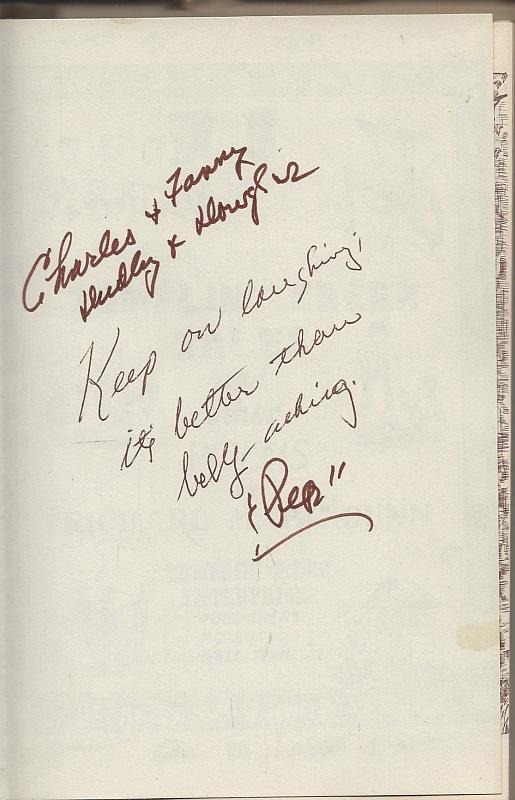 Charles & Fanny
Dudley & Douglas
Keep on laughing;
it's better than
belly-aching.
"Pep"